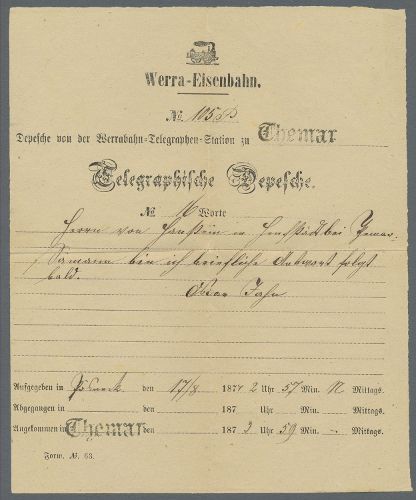 Werra-Eisenbahn.
№ 105
Depesche von der Werrabahn-Telegraphen-Station zu Themar
Telegraphische Depesche.
№ 16 Worte
Herrn von Hanstein in Henfstädt bei Themar
bin ich briefliche Antwort folgt
bald.
Oscar Jahn
Aufgegeben in Pösneck den 17/8 1877 2 Uhr 57 Min. N Mittags.
Abgegangen in den 187 Uhr Min. Mittags.
Angekommen in Themar den 187 3 Uhr 59 Min. – Mittags.
Form. № 63.